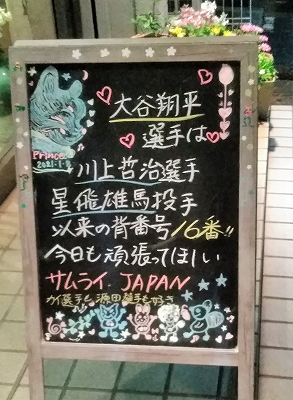 大谷翔平
選手は
Prince
2021.1.8
川上哲治選手
星飛雄馬投手
以来の背番号16番!!
今日も頑張ってほしい
サムライ JAPAN
カイ選手と源田選手も好き